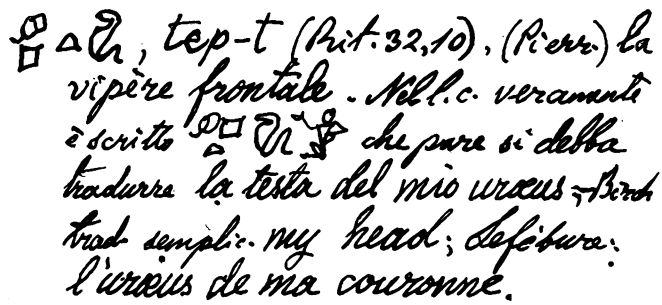 , tep-t (Rit. 32, 10). (Pierr.) la
vipère frontale. Nel l. c. veramente
è scritto che pure si debba
tradurre la testa del mio uræus; Birch
trad. semplic. my head; Lefébure:
l'uræus de ma couronne.